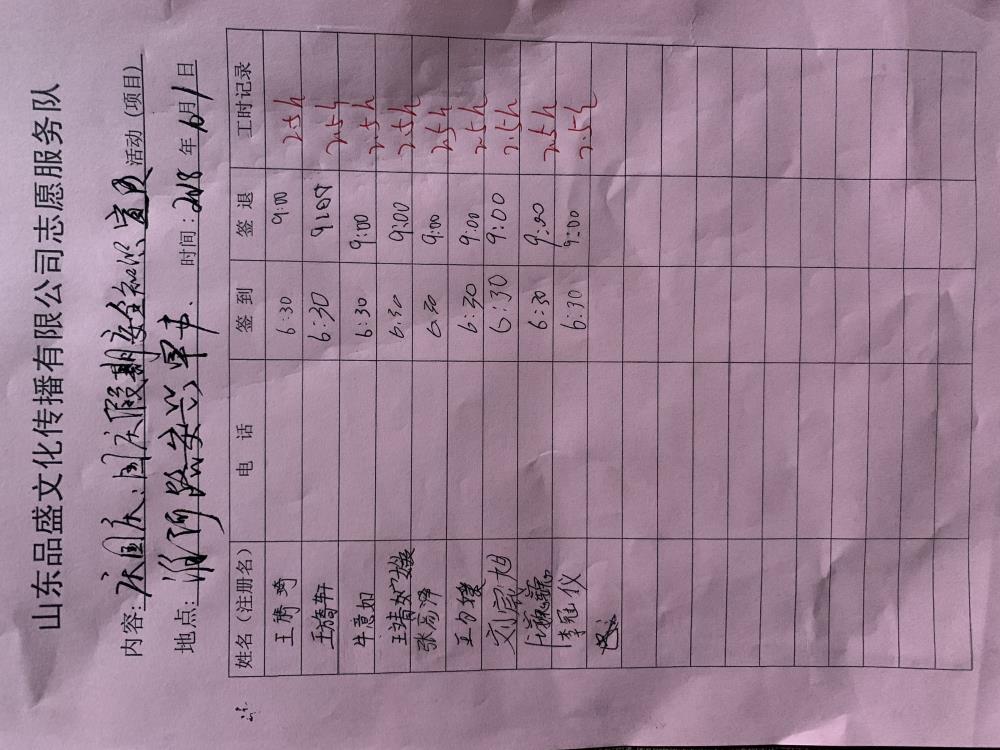 山东品盛文化传播有限公司志愿服务队
内容:庆国庆:国庆假期安全知识宣传 活动(项目)
地点:淮河路 时间:2018年10月1日
姓名(注册名) 电 话 签 到 签 退 工时记录
王腾 6:30 9:00 2.5h
王旖轩 6:30 9:00 2.5h
牛意如 6:30 9:00 2.5h
王 6:30 9:00 2.5h
张 6:30 9:00 2.5h
王 6:30 9:00 2.5h
刘宸旭 6:30 9:00 2.5h
6:30 9:00 2.5h
李冠仪 6:30 9:00 2.5h